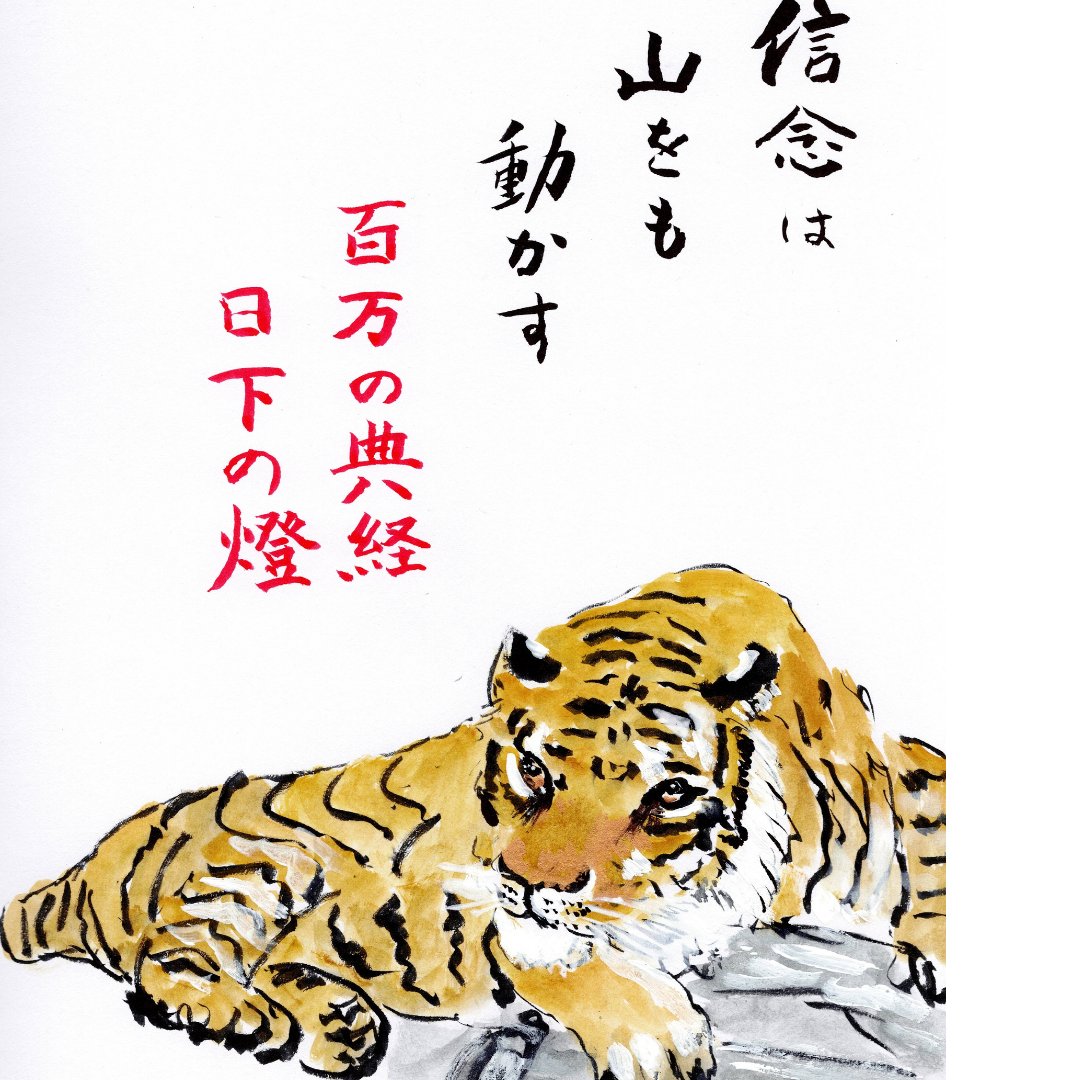 信念は
山をも
動かす
百万の典経
日下の燈